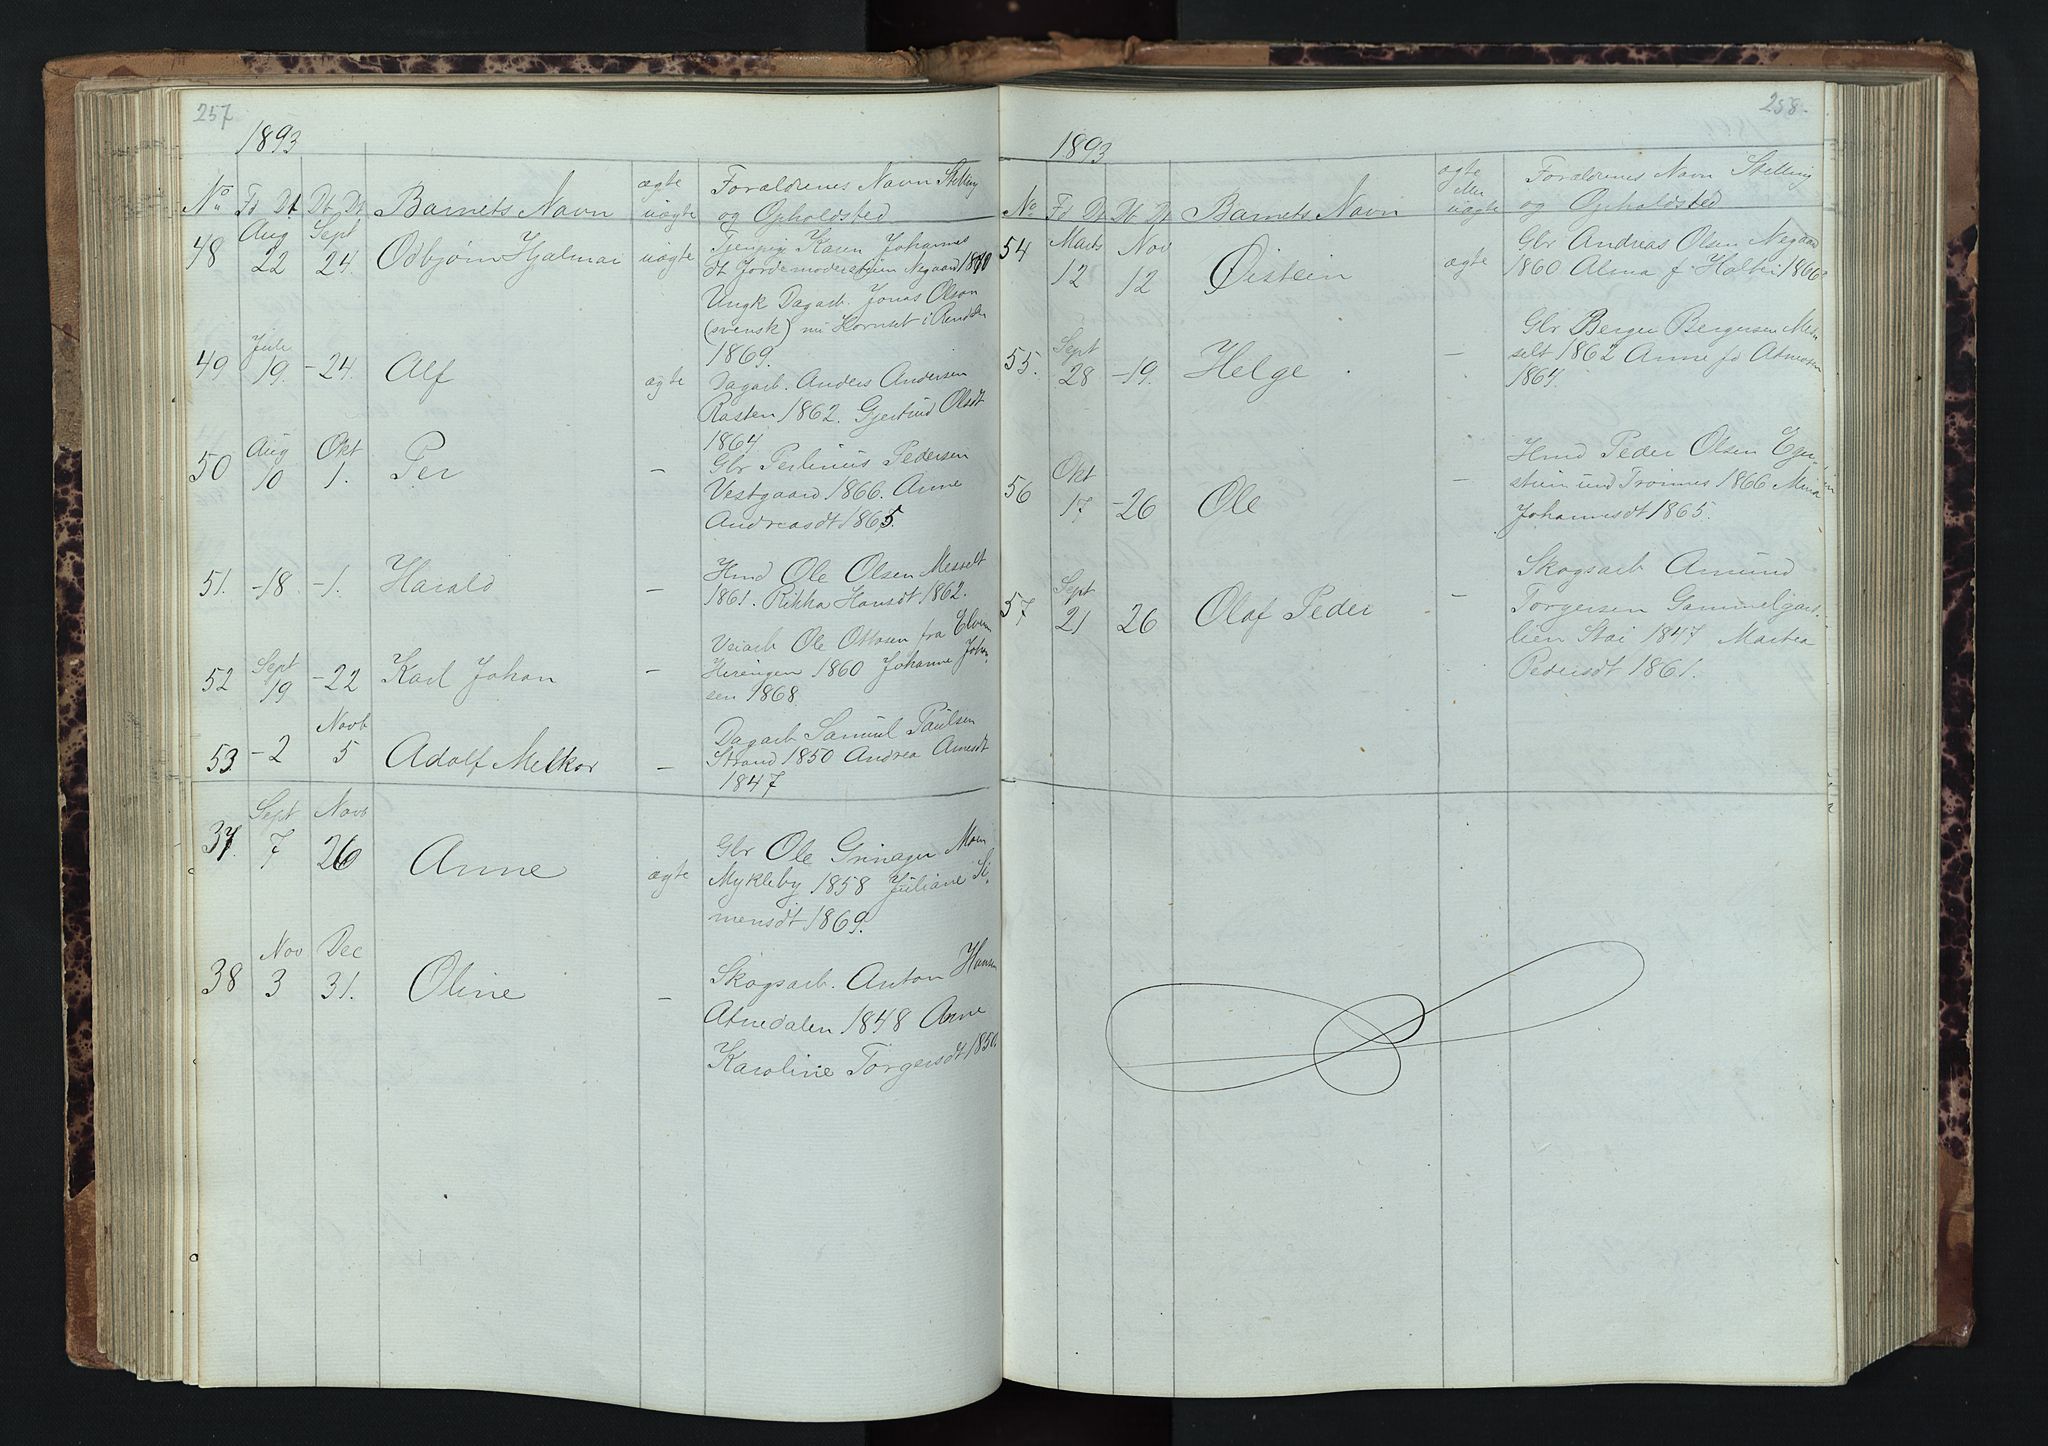 257
1893
No Fd Dt Db Dt Barnets Navn ægte uægte Forældrenes Navn Stilling og Opholdsted
48 Aug 22 Sept 24. Odbjørn Hjalmar uægte Tjenpig Karen Johannes
dt Jordemoderstuen Negaard 1870
Ungk Dagarb. Jonas Olson
(svensk) nu Hornset i Rendalen
1869.
49 Juli 19. - 24. Alf ægte Dagarb. Anders Andersen
Rasten 1862. Gjertrud Olsdt
1864
50 Aug 10 Okt 1. Per - Gbr Perlinius Pedersen
Vestgaard 1866. Anne
Andreasdt 1865.
51. -18. -1. Harald - Hmd Ole Olsen Messelt
1861. Rikka Hansdt 1862.
52 Sept 19 -22 Karl Johan - Veiarb Ole Ottosen fra Elverum
1860 Johanne Johan
sen 1868
53. -2 Novb 5 Adolf Melkor - Dagarb Samuel Paulsen
Strand 1850 Andrea Arnesdt
1847
37. Sept 7 Novb 26 Anne ægte Gbr Ole Moen
Mykleby 1858 Juliane Si-
mensdt 1869.
38 Nov 3 Dec 31. Oline - Skogsarb. Anton Hansen
Atnedalen 1848 Anne
Karoline Torgersdt 1850.
258.
1893
No Fd Dt Db Dt Barnets Navn ægte eller uægte Forældrenes Navn Stilling og Opholdsted
54 Marts 12 Nov 12 Øistein ægte Gbr Andreas Olsen Negaard
1860 Alma f. 1866
55. Sept 28 -19. Helge - Gbr Berger Bergersen Mes-
selt 1862 Anne
1864.
56 Okt 17 -26 Ole - Hmd Peder Olsen
und Trønnes 1866
Johannesdt 1865.
57 Sept 21 26 Olaf Peder - Skogsarb Amund
Torgersen
Stai 1847 Martea
Pedersdt 1861.